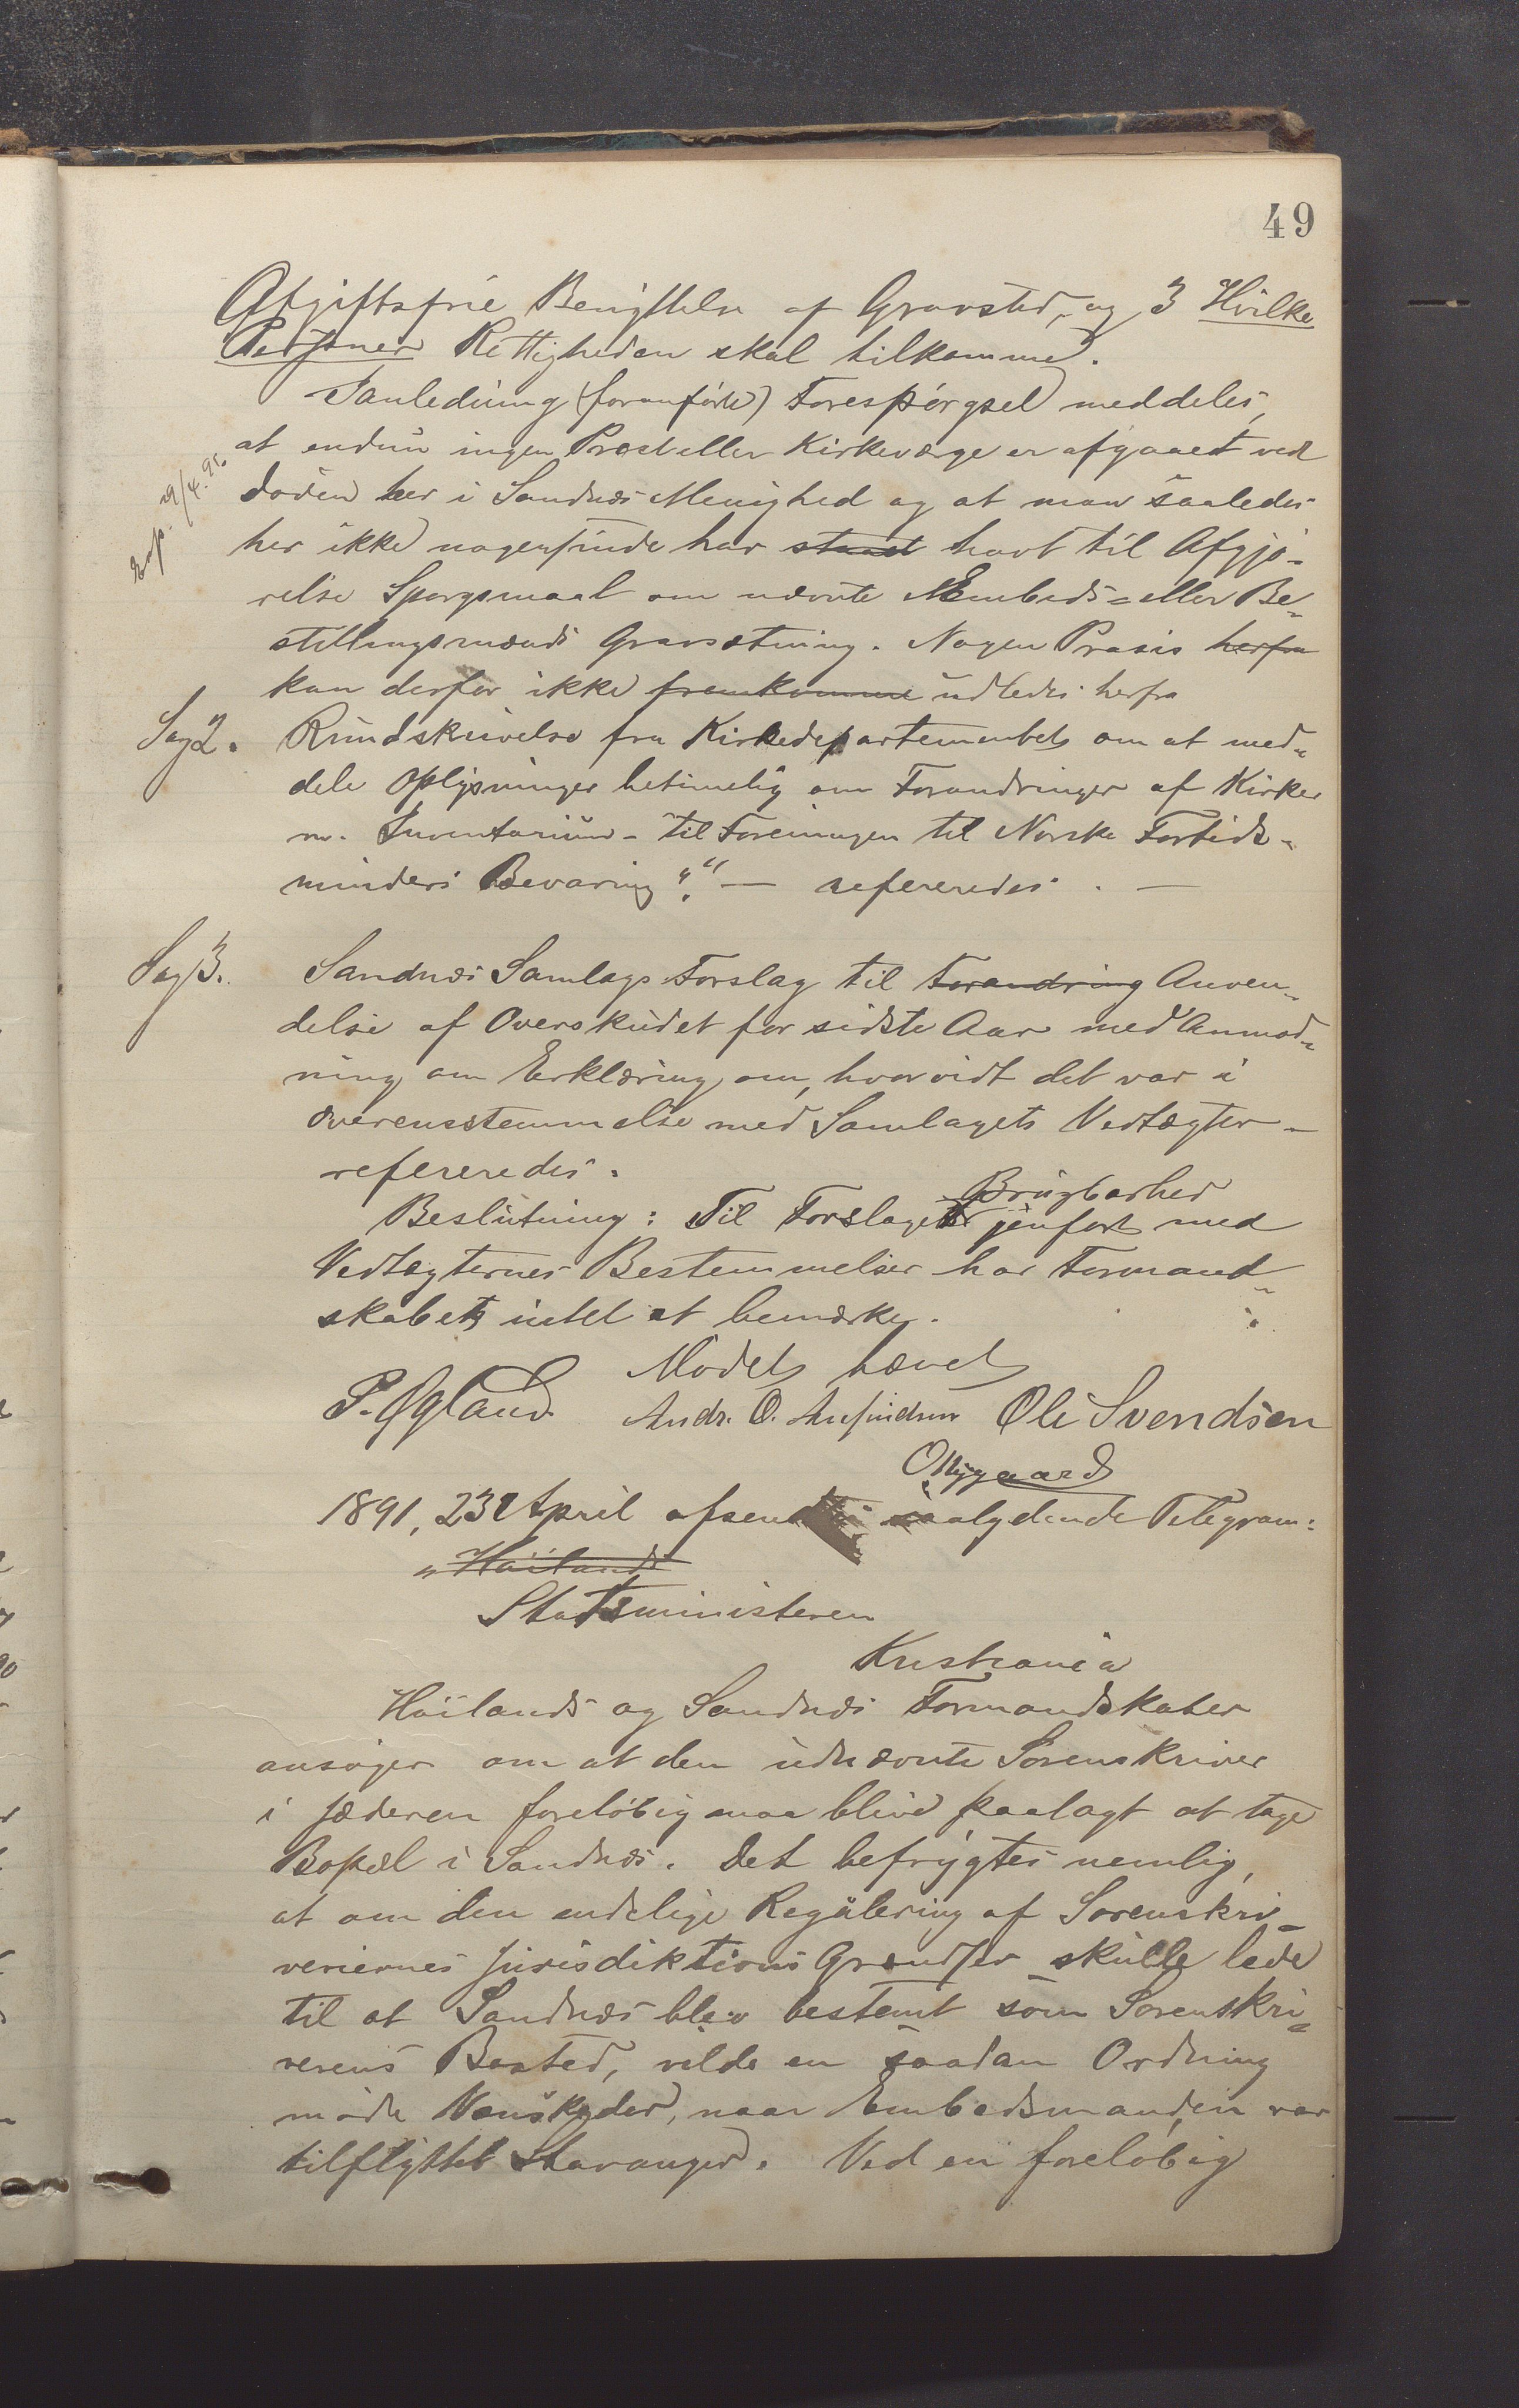 49
Afgiftsfrie Benyttelse af Gravsted, og 3 Hvilke
Personer Rettigheden skal tilkomme.
I anledning (foranførte) Forespörgsel meddeles,
at endnu ingen Præst eller Kirkeværge er afgaaet ved
döden her i Sandnæs Menighed og at man saaledes
her ikke nogensinde har staaet havt til Afgjö-
relse Spørgsmaal om nævnte Embeds- eller Be-
stillingsmænds Gravsætning. Nogen Praxis herfra
kan derfor ikke fremkomme udledes herfra
Exp. 29/4.91.
Sag 2. Rundskrivelse fra Kirkedepartementet om at med-
dele Oplysninger betimelig om Forandringer af Kirker
m. Inventarium - til Foreningen til Norske Fortids-
minders Bevaring". — refereredes. —
Sag 3. Sandnæs Samlags Forslag til Forandring Anven-
delse af Overskudet for sidste Aar med Anmod-
ning om Erklæring om, hvorvidt det var i
overensstemmelse med Samlagets Vedtægter -
refereredes.
Brugbarhed
Beslutning: Til Forslagets jenført med
Vedtægternes Bestemmelser har Formand-
skabet intet at bemærke.
Mödet hævet
P. Øgland Andr. O. Anfindsen Ole Svendsen
O Nygaard
1891, 23 April afsendtes saalydende Telegram:
"Høilands
Statsministeren
Kristiania
Höilands og Sandnæs Formandskaber
ansöger om at den udnævnte Sorenskriver
i Jæderen foreløbig maa blive paalagt at tage
Bopæl i Sandnæs. Det befrygtes nemlig,
at om den endelige Regulering af Sorenskri-
veriernes Jurisdiktions Grændser skulle lede
til at Sandnæs blev bestemt som Sorenskri-
verens Bosted, vilde en saadan Ordning
möde Vanskeder, naar Embedsmanden var
tilflyttet Stavanger. Ved en foreløbig